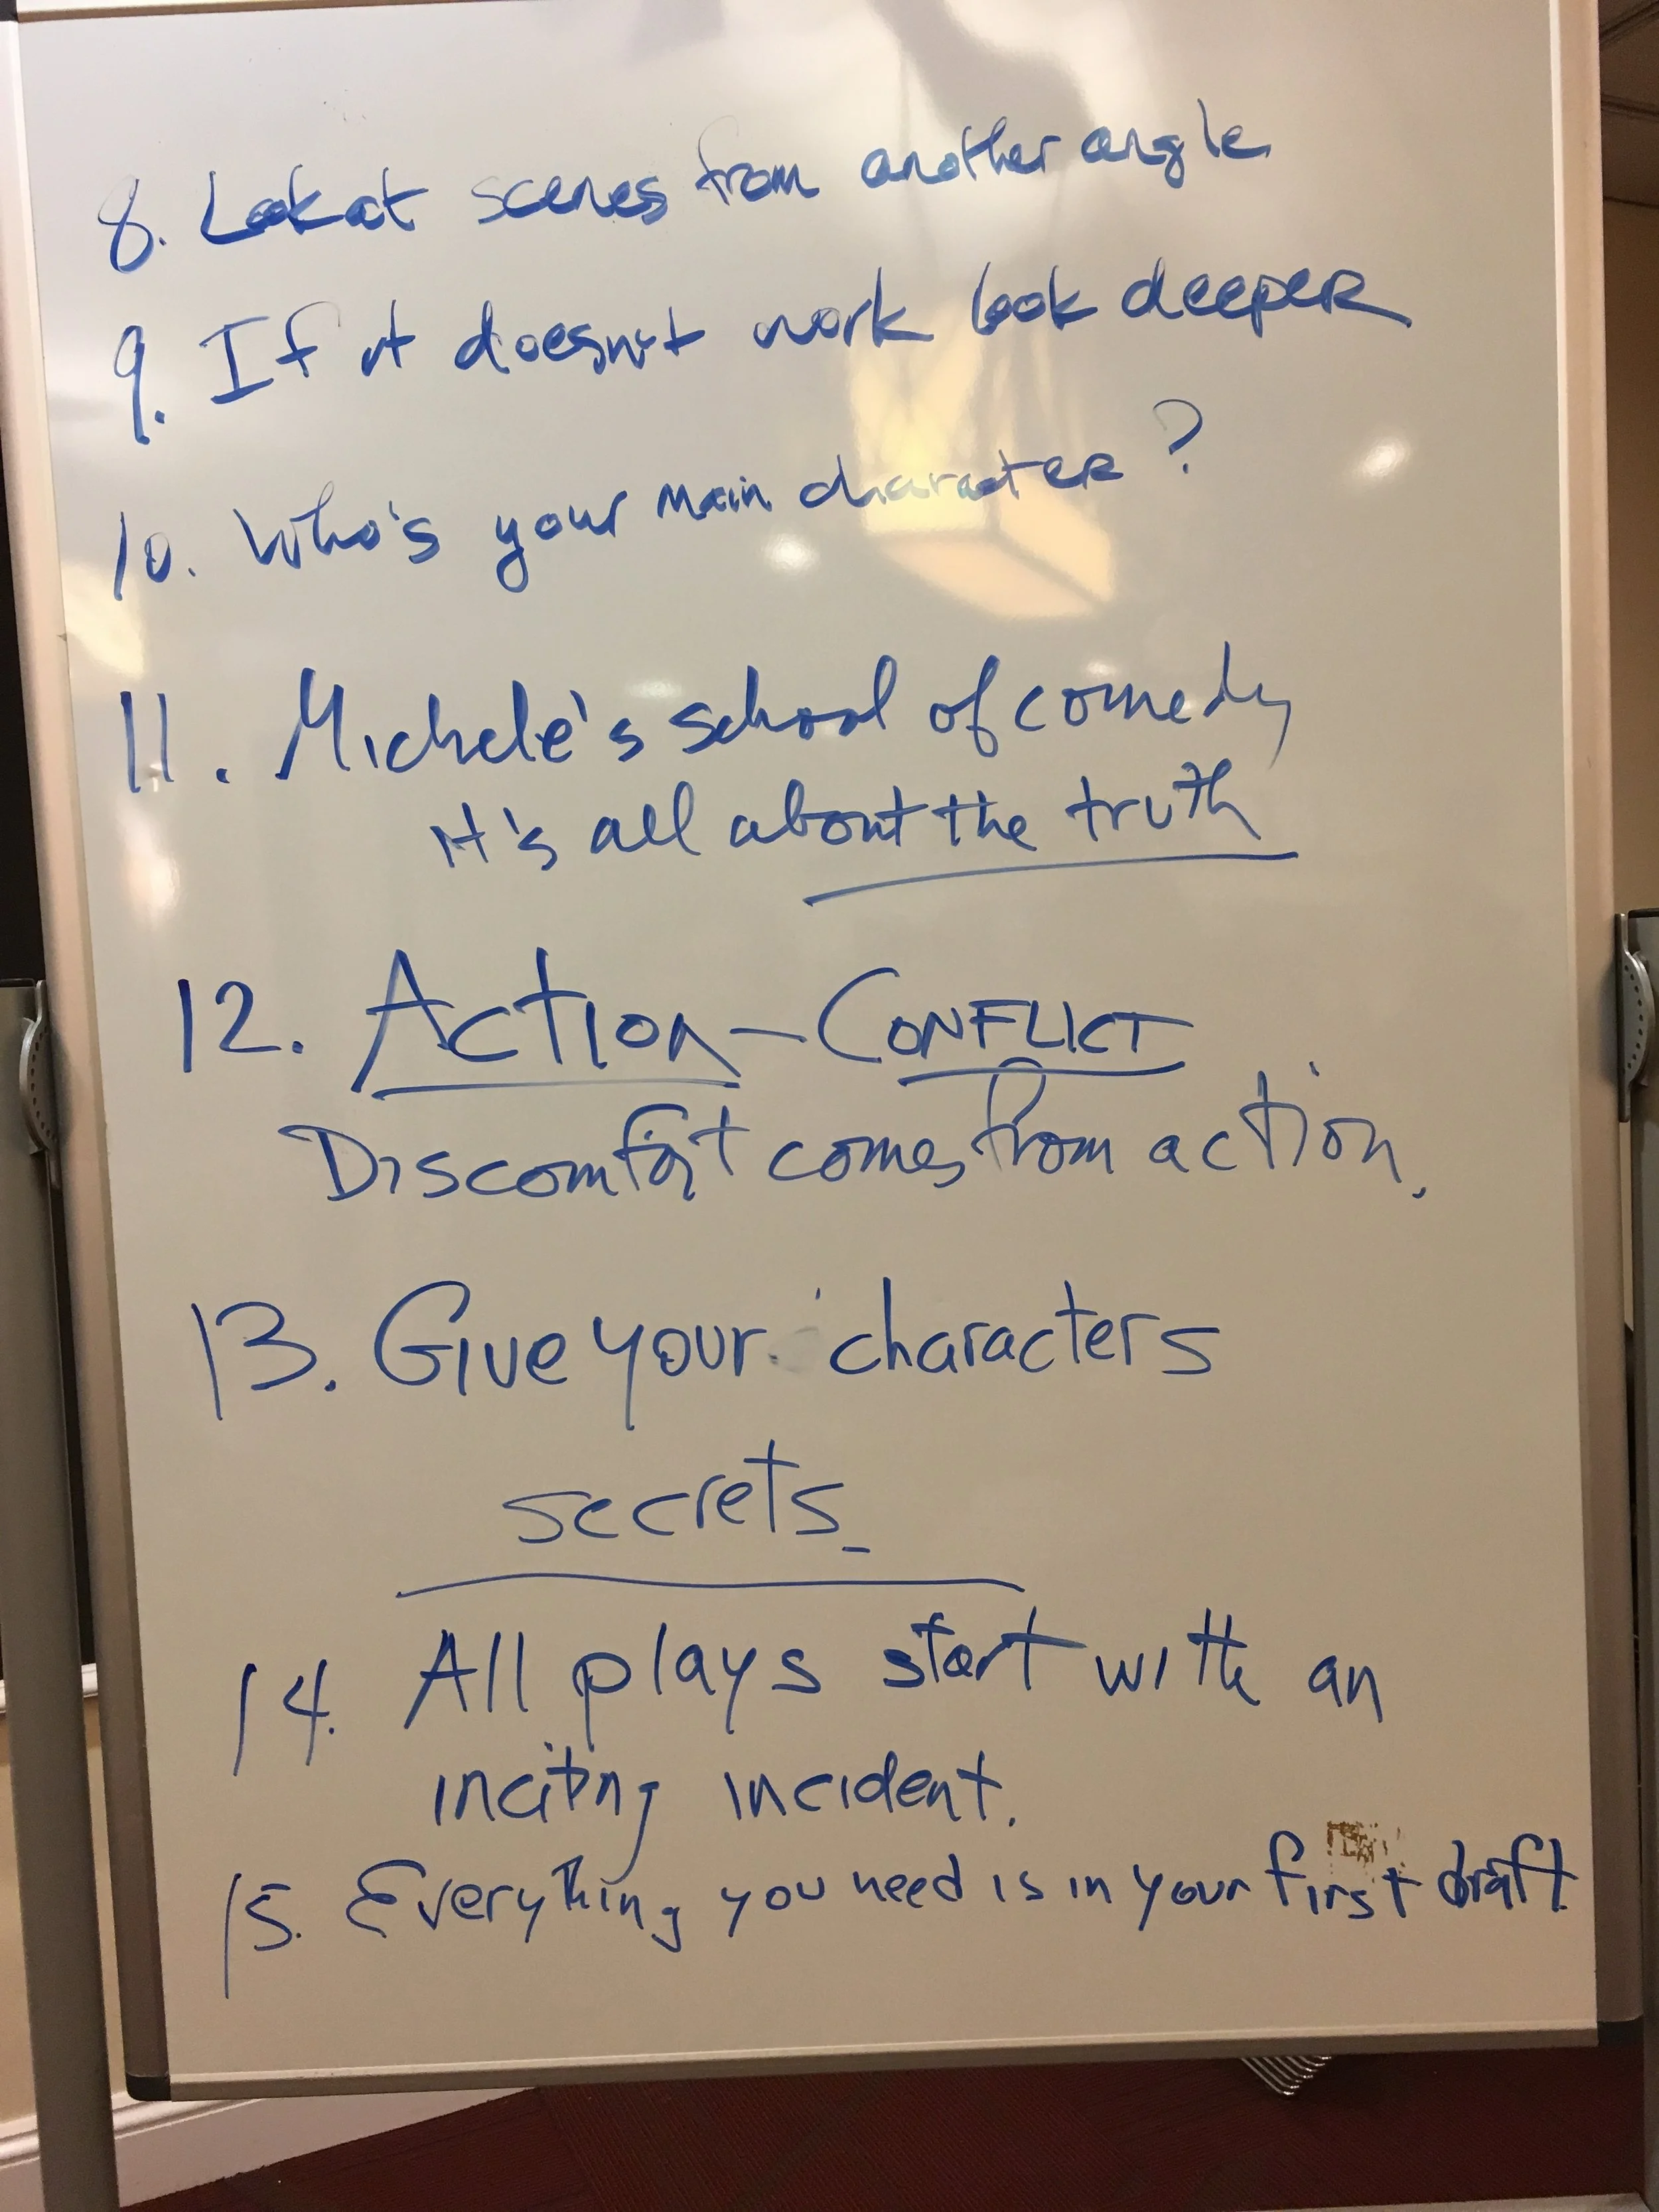 8. Look at scenes from another angle
9. If it doesn't work look deeper
10. Who's your main character?
11. Michele's school of comedy
It's all about the truth
12. Action - Conflict
Discomfort comes from action.
13. Give your characters
secrets.
14. All plays start with an
inciting incident.
15. Everything you need is in your first draft.